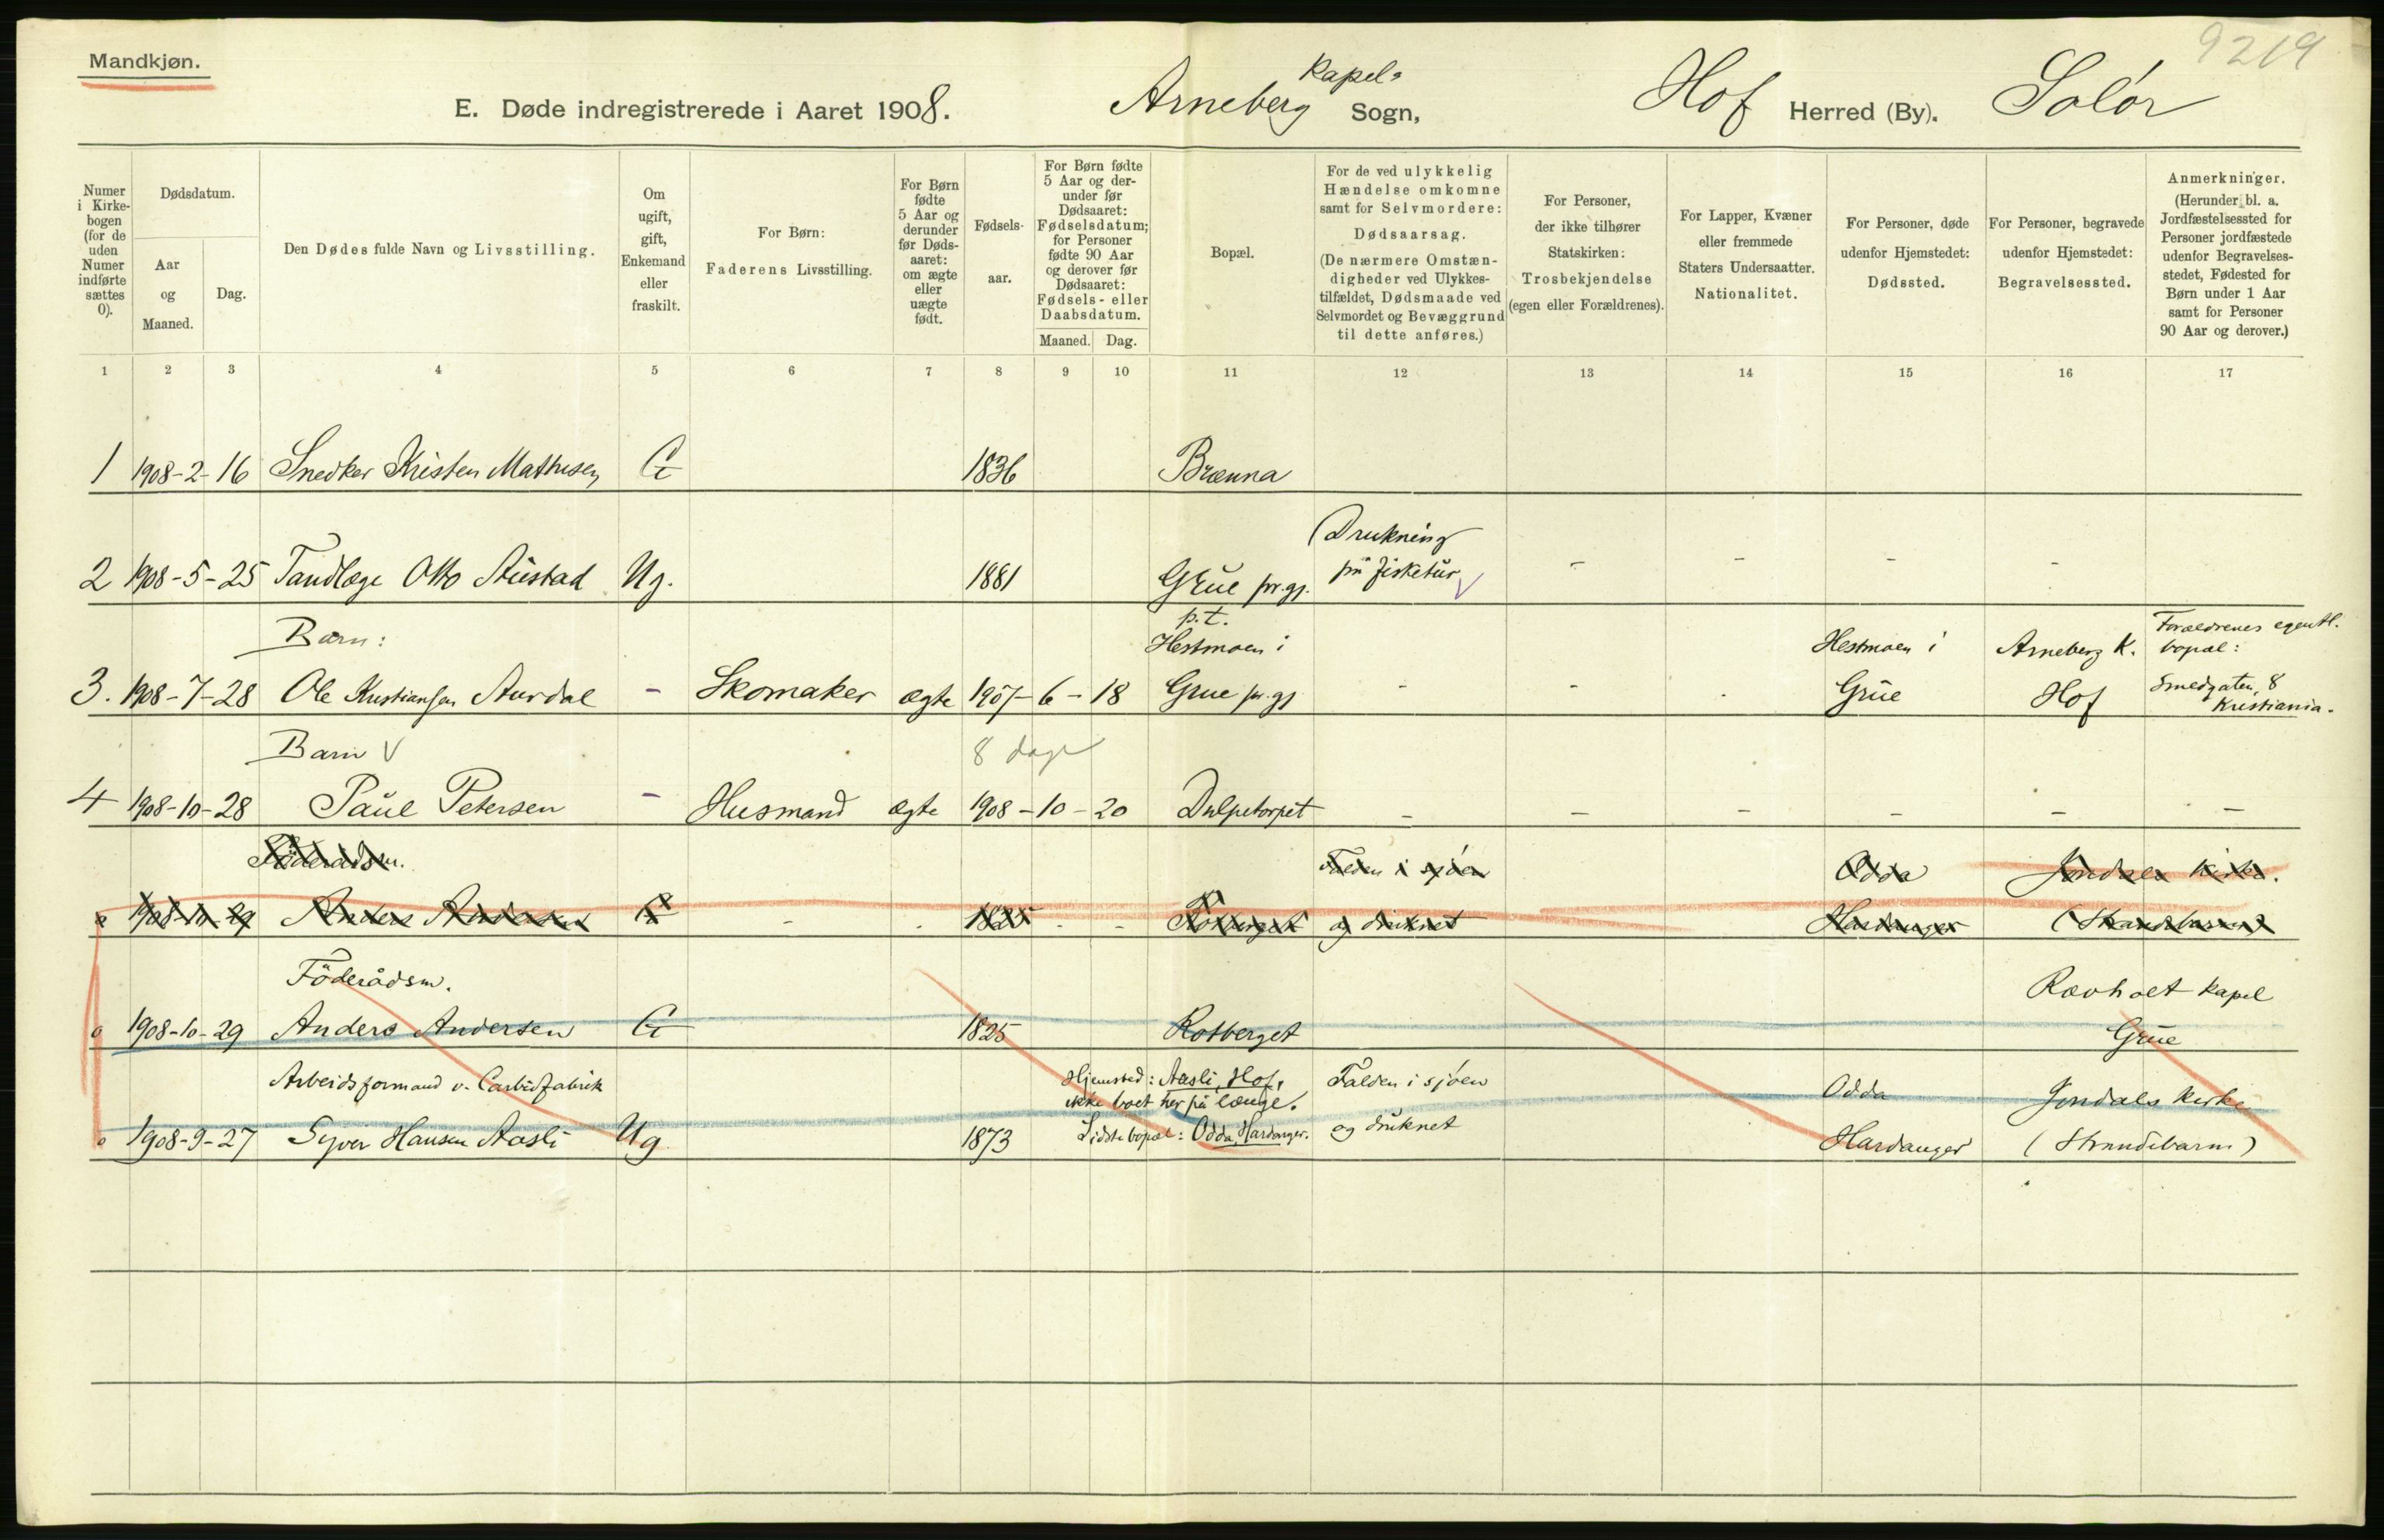 9219
Mandkjøn.
E. Døde indregistrerede i Aaret 1908. Arneberg Kapel- Sogn, Hof Herred (By). Solør
Numer
i Kirke-
bogen
(for de
uden
Numer
indførte
sættes
0).
Dødsdatum.
Aar
og
Maaned.
Dag.
Den Dødes fulde Navn og Livsstilling.
Om
ugift,
gift,
Enkemand
eller
fraskilt.
For Børn:
Faderens Livsstilling.
For Børn
fødte
5 Aar og
derunder
før Døds-
aaret:
om ægte
eller
uægte
født.
Fødsels-
aar.
For Børn fødte
5 Aar og der-
under før
Dødsaaret:
Fødselsdatum;
for Personer
fødte 90 Aar
og derover før
Dødsaaret:
Fødsels- eller
Daabsdatum.
Maaned. Dag.
Bopæl.
For de ved ulykkelig
Hændelse omkomne
samt for Selvmordere:
Dødsaarsag.
(De nærmere Omstæn-
digheder ved Ulykkes-
tilfældet, Dødsmaade ved
Selvmordet og Bevæggrund
til dette anføres.)
For Personer,
der ikke tilhører
Statskirken:
Trosbekjendelse
(egen eller Forældrenes).
For Lapper, Kvæner
eller fremmede
Staters Undersaatter.
Nationalitet.
For Personer, døde
udenfor Hjemstedet:
Dødssted.
For Personer, begravede
udenfor Hjemstedet:
Begravelsessted.
Anmerkninger.
(Herunder bl. a.
Jordfæstelsessted for
Personer jordfæstede
udenfor Begravelses-
stedet, Fødested for
Børn under 1 Aar
samt for Personer
90 Aar og derover.)
1 2 3 4 5 6 7 8 9 10 11 12 13 14 15 16 17
1 1908-2-16 Snedker Kristen Mathisen G 1836 Brænna
Drukning
2 1908-5-25 Tandlæge Otto Austad Ug. 1881 Grue pr.gj. på fisketur
Barn: p.t. Hestmoen i Hestmoen i Arneberg K. Forældrenes egentl. bopæl:
3. 1908-7-28 Ole Kristiansen Aurdal - Skomaker ægte 1907-6-18 Grue pr.gj. - - Grue Hof Smedgaten 8 Kristiania.
Barn 8 dage
4 1908-10-28 Paul Petersen - Husmand ægte 1908-10-20 Dulpetorpet - - - - - -
Föderådsm. Falden i sjøen Odda Jondals kirke.
o 1908-10-29 Anders Andersen G - 1825 Rotberget og druknet Hardanger (Strandebarm)
Föderådsm. Rævholt kapel
o 1908-10-29 Anders Andersen G 1825 Rotberget Grue
Arbeidsformand v. Carbidfabrik Hjemsted: Aasli, Hof, Falden i sjøen Odda Jondals kirke
ikke boet her på længe.
o 1908-9-27 Syver Hansen Aasli Ug 1873 Sidste bopæl: Odda, Hardanger. og druknet Hardanger (Strandebarm)